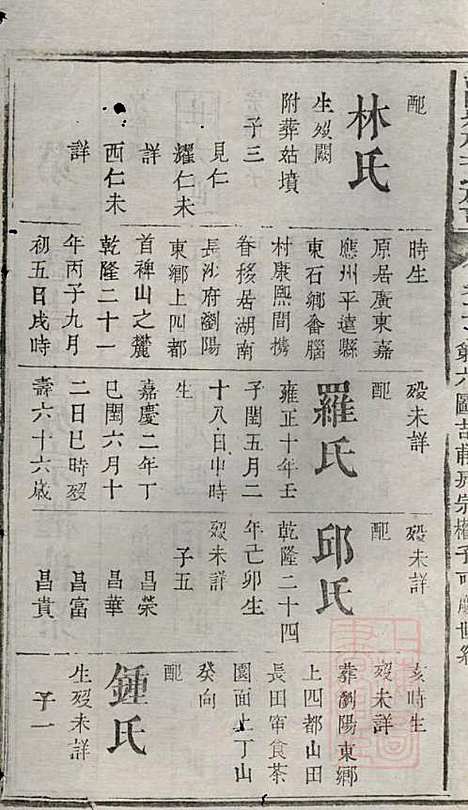 配
林氏
生歿闕
附葬姑墳
子三
見仁
耀仁未
詳
西仁未
詳
時生
原居廣東嘉
應州平遠縣
東石鄉畬腦
村康熙間携
眷移居湖南
長沙府瀏陽
東鄉上四都
首裨山之麓
乾隆二十一
年丙子九月
初五日戌時
歿未詳
配
羅氏
雍正十年壬
子閏五月二
十八日申時
生
嘉慶二年丁
巳閏六月十
二日巳時歿
壽六十六歲
歿未詳
配
邱氏
乾隆二十四
年己卯生
歿未詳
子五
昌榮
昌華
昌富
昌貴
亥時生
歿未詳
葬瀏陽東鄉
上四都山田
長田窜食茶
園面上丁山
癸向
配
鍾氏
生歿未詳
子一